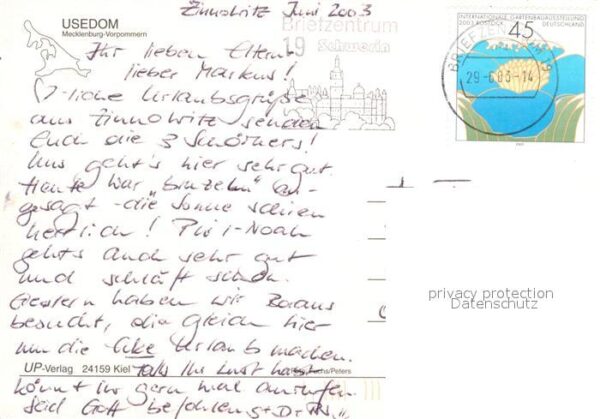 Zinnowitz Juni 2003
USEDOM
Mecklenburg-Vorpommern
Briefzentrum
19 Schwerin
INTERNATIONALE GARTENBAUAUSSTELLUNG
2003 ROSTOCK DEUTSCHLAND
45
BRIEFZENTRUM 19
29-6.03-14
Ihr lieben Eltern
lieber Markus!
♡-liche Urlaubsgrüße
aus Zinnowitz senden
Euch die 3 Schöthers!
Uns geht's hier sehr gut.
Heute war "brutzeln" an-
gesagt - die Sonne schien
herrlich! Noah
gehts auch sehr gut
und schläft schon.
Gestern haben wir
besucht, die gleich hier
um die Ecke Urlaub machen.
Falls Ihr Lust habt
könnt ihr gern mal anrufen.
Seid Gott befohlen
UP-Verlag 24159 Kiel
/Peters
privacy protection
Datenschutz